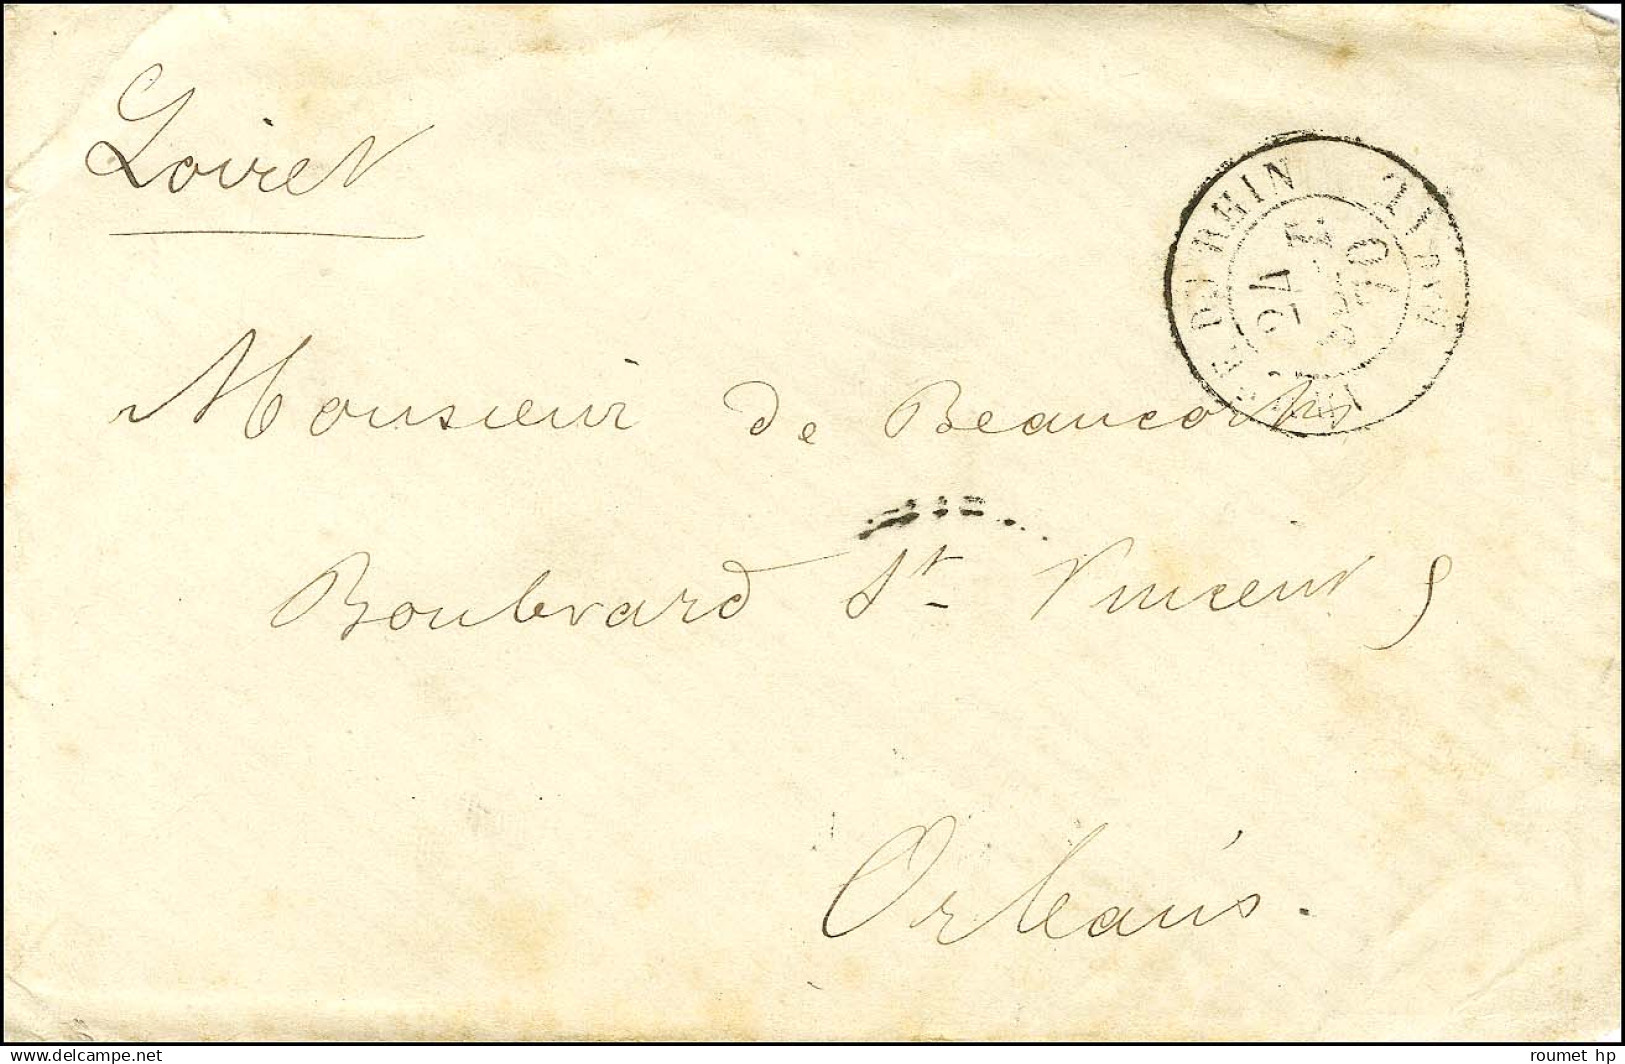 Loiret
ARMÉE DU RHIN
24
70
Monsieur de Beaucorps
Boulevard St Vincent 9
Orléans.
www.delcampe.net
roumet hp